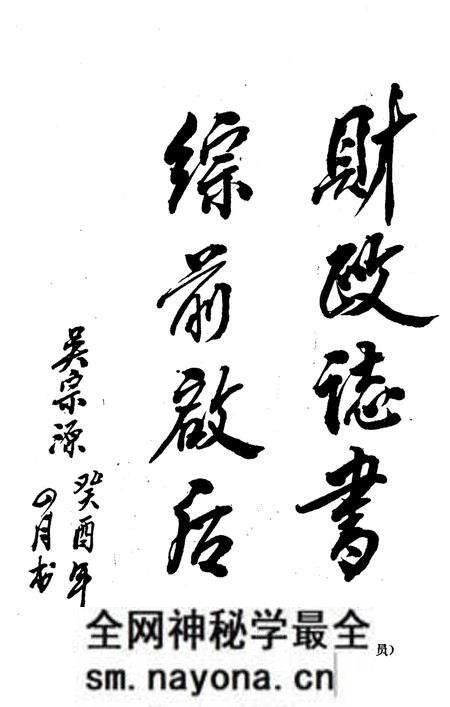 財政誌書
綜前啟后
吴宗源
癸酉年
四月书
全网神秘学最全
sm.nayona.cn
员）